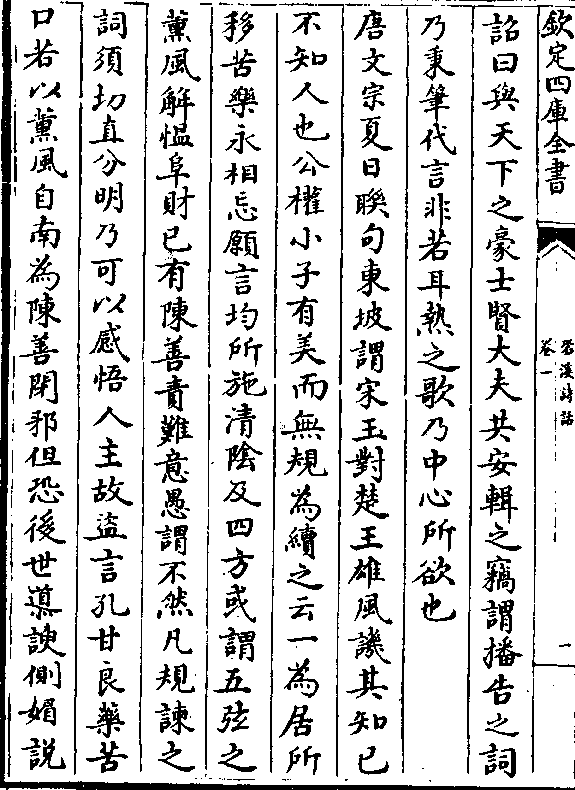 欽定四庫全書
䂬溪詩話
卷一
一
詔曰與天下之豪士賢大夫共安輯之竊謂播告之詞
乃秉筆代言非若耳熱之歌乃中心所欲也
唐文宗夏日聨句東坡謂宋玉對楚王雄風譏其知已
不知人也公權小子有美而無規為續之云一為居所
移苦樂永相忘願言均所施清隂及四方或謂五弦之
薫風解愠阜財已有陳善責難意愚謂不然凡規諫之
詞須切直分明乃可以感悟人主故盗言孔甘良藥苦
口若以薫風自南為陳善閉邪但恐後世導諛側媚說